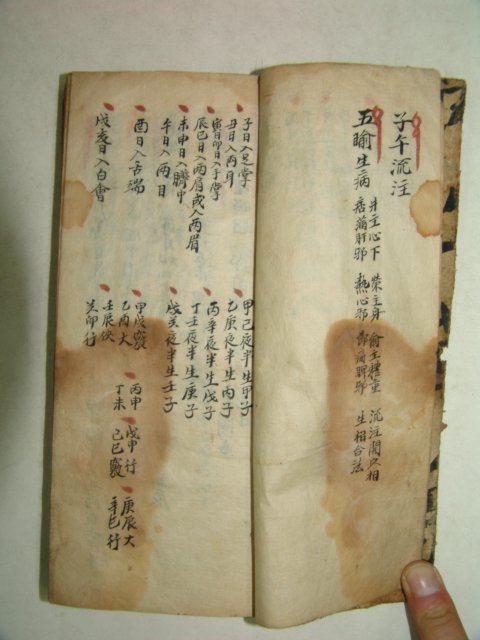 子午沉注
五腧生病
井主心下
痞滿肝邪
榮主身
熱心邪
俞主體重
節痛脾邪
沉注開穴相
生相合法
子日入足掌
丑日入両耳
寅日卯日入手掌
辰巳日入両肩或入両眉
未申日入臍中
午日入両目
酉日入舌端
戌亥日入百會
甲己夜半生甲子
乙庚夜半生丙子
丙辛夜半生戊子
丁壬夜半生庚子
戊癸夜半生壬子
甲戌竅
乙酉大
壬辰
癸卯行
丙申
丁未
戊申行
己巳竅
庚辰大
辛巳行